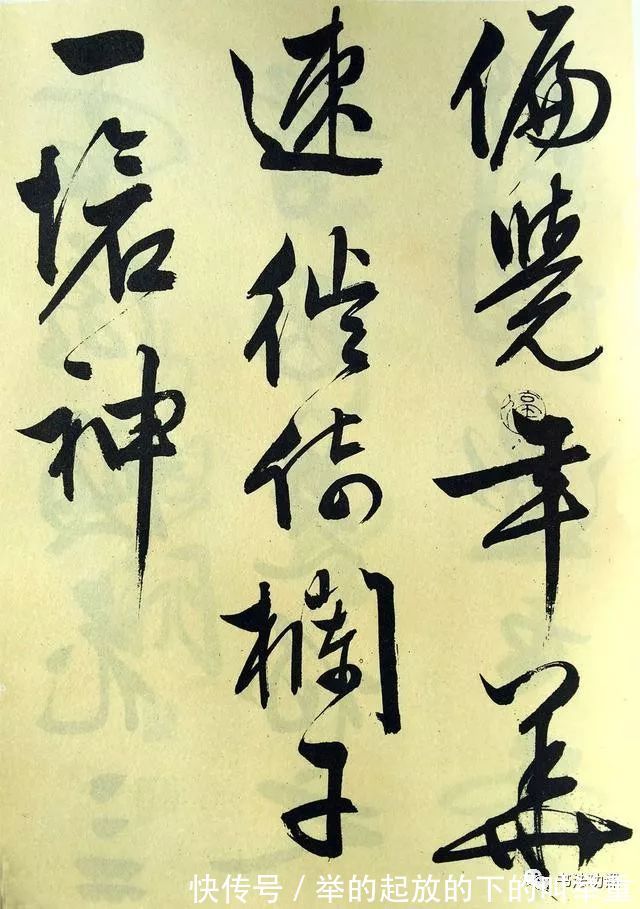 偏覺年華
速徙倚欄干
一愴神
快传号 / 举的起放的下的叫举重